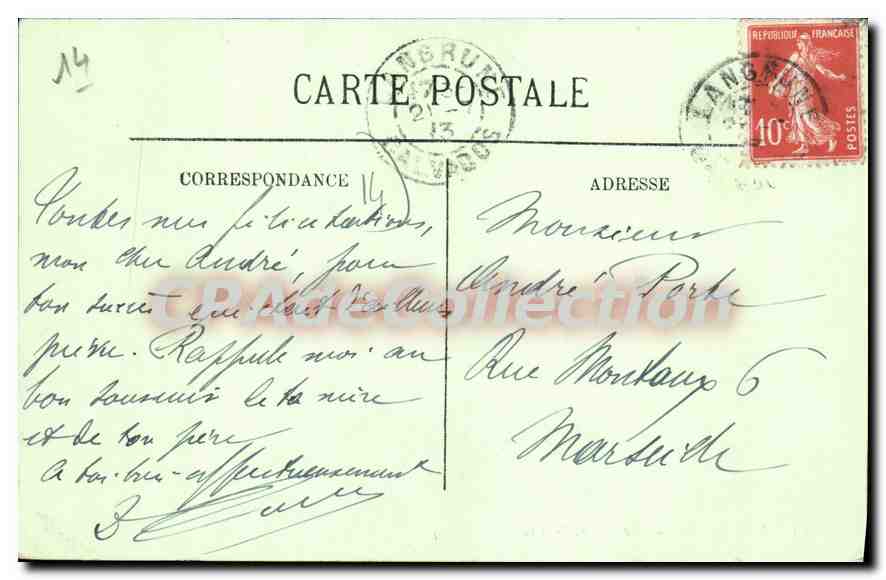 14
CARTE POSTALE
LANGRUNE
21 -
13
CALVADOS
REPUBLIQUE FRANÇAISE
10c
POSTES
LANGRUNE
CORRESPONDANCE
14
ADRESSE
Toutes mes félicitations,
mon cher André, pour
ton succès qui était d'ailleurs
prévu. Rappelle moi au
bon souvenir de ta mère
et de ton père
A toi bien affectueusement
Monsieur
André Porte
Rue Montaux 6
Marseille
CPAdeCollection